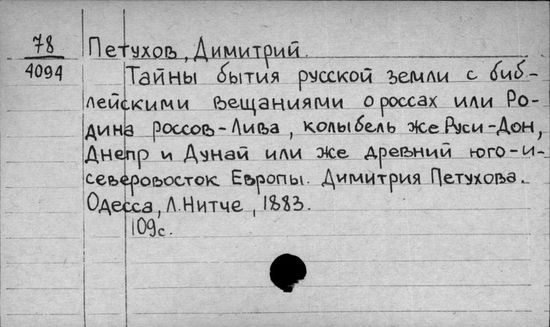 78 Петухов, Димитрий.
4094 Тайны бытия русской земли с биб-
лейскими вещаниями о россах или Ро-
дина россов-Лива, колыбель же Руси-Дон,
Днепр и Дунай или же древний юго-и-
северовосток Европы. Димитрия Петухова.-
Одесса, Л.Нитче, 1883.
109с.